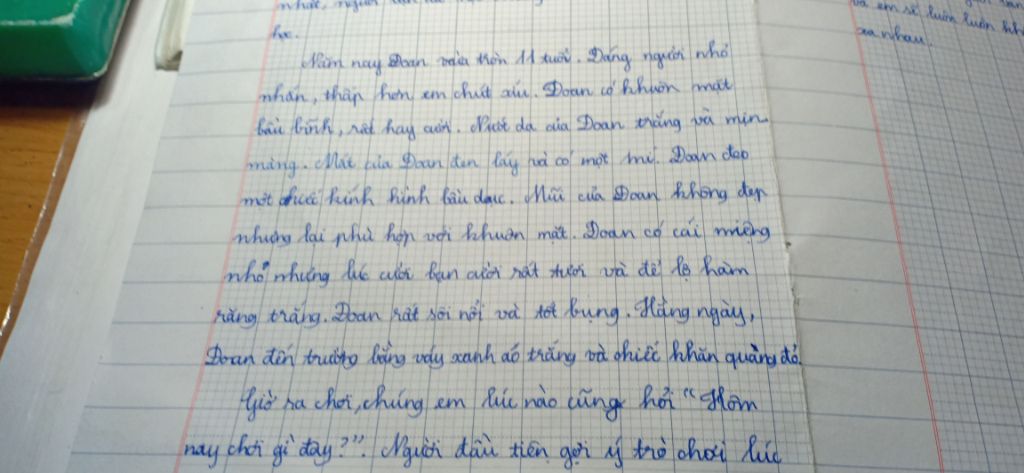 nhất, người
học.
Năm nay Đoan vừa tròn 11 tuổi. Dáng người nhỏ
nhắn, thấp hơn em chút xíu. Đoan có khuôn mặt
bầu bĩnh, rất hay cười. Nước da của Đoan trắng và mịn
màng. Mắt của Đoan đen láy và có một mí. Đoan đeo
một chiếc kính hình bầu dục. Mũi của Đoan không đẹp
nhưng lại phù hợp với khuôn mặt. Đoan có cái miệng
nhỏ nhưng lúc cười bạn cười rất tươi và để lộ hàm
răng trắng. Đoan rất sôi nổi và tốt bụng. Hằng ngày,
Đoan đến trường bằng váy xanh áo trắng và chiếc khăn quàng đỏ.
Giờ ra chơi, chúng em lúc nào cũng hỏi "Hôm
nay chơi gì đây?". Người đầu tiên gợi ý trò chơi lúc
và em sẽ luôn luôn
xa nhau.